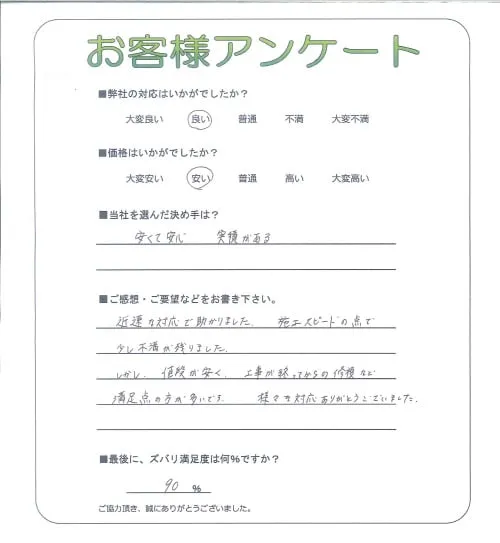 お客様アンケート
■弊社の対応はいかがでしたか?
大変良い 良い 普通 不満 大変不満
■価格はいかがでしたか?
大変安い 安い 普通 高い 大変高い
■当社を選んだ決め手は?
安くて安心 実績がある
■ご感想・ご要望などをお書き下さい。
迅速な対応で助かりました. 施工スピードの点で
少し不満が残りました.
しかし、値段が安く、工事が終ってからの修理など
満足点の方が多いです. 様々な対応ありがとうございました.
■最後に、ズバリ満足度は何%ですか?
90 %
ご協力頂き、誠にありがとうございました。